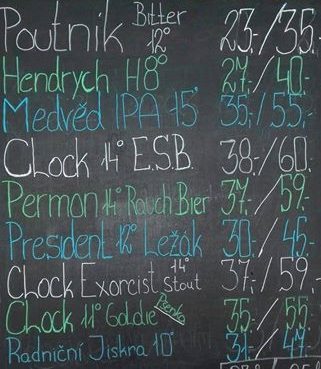 Poutník Bitter 12° 23,-/35,-
Hendrych H8° 27,-/40,-
Medvěd IPA 15° 35,-/55,-
Clock 14° E.S.B. 38,-/60,-
Permon 11° Rauch Bier 37,-/59,-
President 12° Ležák 30,-/45,-
Clock Exorcist 14° Stout 37,-/59,-
Clock 11° Goldie Pšenka 35,-/55,-
Radniční Jiskra 10° 31,-/47,-